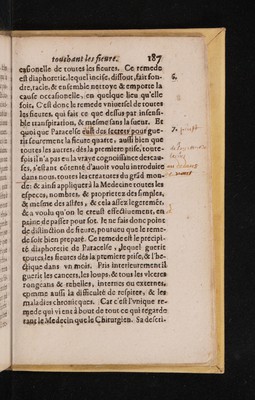 touchant les fieure. 187
casionelle de toutes les fieures. Ce remede
est diaphoretic, lequel incise, dissout, fait fon-
dre, racie, & ensemble nettoye & emporte la
cause occasionelle, en quelque lieu qu'elle
soit. C'est donc le remede vniuersel de toutes
les fieures, qui fait ce que dessus par insensi-
ble transpiration, & mesme sans la sueur. Et
quoi que Paracelse eust des secrets pour gue-
rir seurement la fieure quarte, aussi bien que
toutes les autres, dés la premiere prise, toute-
fois il n'a pas eu la vraye cognoissance des cau-
ses, s'estant contenté d'auoir voulu introduire
dans nous, toutes les creatures du grād mon-
de: & ainsi appliquer à la Medecine toutes les
especes, nombres, & proprietez des simples,
& mesme des astres, & cela assez legerement,
& a voulu qu'on le creust effectiuement, en
paine de passer pour sot. Ie ne fai donc point
de distinction de fieure, pourueu que le reme-
de soit bien preparé. Ce remede est le precipi-
té diaphoretic de Paracelse, lequel guerit
toutes les fieures dés la premiere prise, & l'he-
ctique dans vn mois. Pris interieurement il
guerit les cancers, les loups, & tous les vlceres
rongeans & rebelles, internes ou externes,
comme aussi la difficulté de respirer, & les
maladies chronicques. Car c'est l'vnique re-
mede qui vient à bout de tout ce qui regarde
tant le Medecin que le Chirurgien. Sa descri-
6.
7.